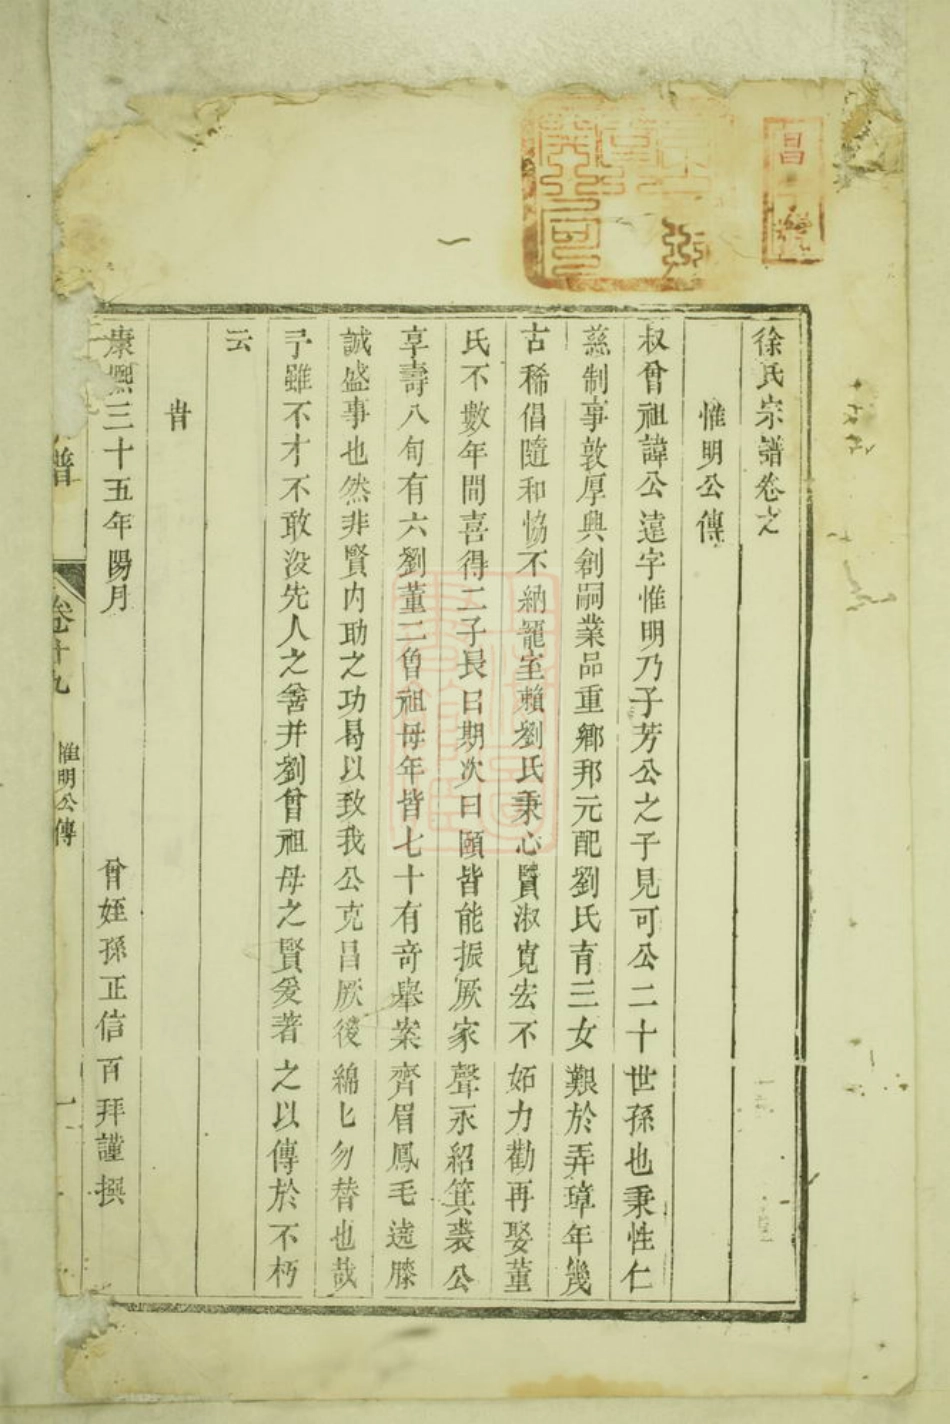 徐氏宗譜卷之
惟明公傳
叔曾祖諱公遠字惟明乃子芳公之子見可公二十世孫也秉性仁
慈制事敦厚興創嗣業品重鄉邦元配劉氏育三女艱於弄璋年幾
古稀倡隨和恊不納寵室賴劉氏秉心賢淑寛宏不妬力勸再娶董
氏不數年間喜得二子長曰期次曰頤皆能振厥家聲永紹箕裘公
享壽八旬有六劉董二曾祖母年皆七十有奇舉案齊眉鳳毛遶膝
誠盛事也然非賢内助之功曷以致我公克昌厥後綿匕勿替也哉
予雖不才不敢没先人之善并劉曾祖母之賢爰著之以傳於不朽
云
旹
康熙三十五年陽月
曾姪孫正信百拜謹撰
譜
卷十九
惟明公傳
一